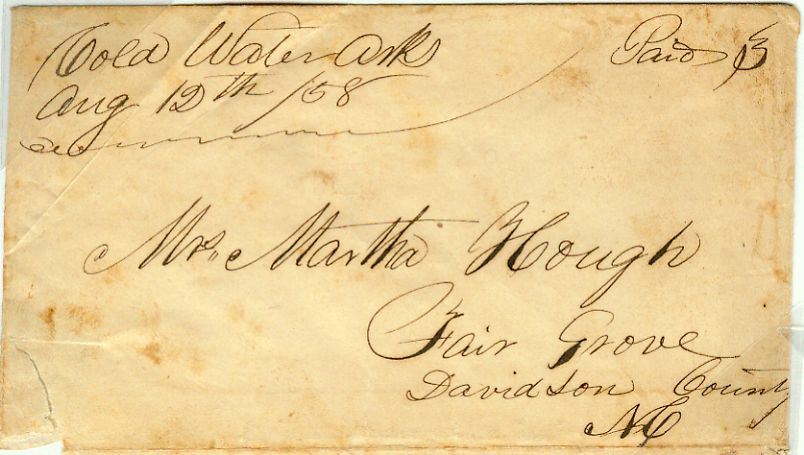 Cold Water Arks
Paid 3
Aug 12th /58
Mrs. Martha Hough
Fair Grove
Davidson County
NC